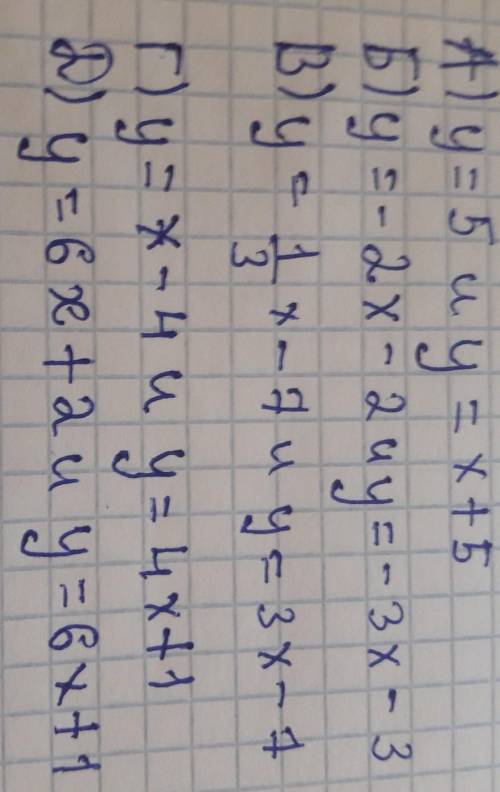 А) y = 5 и y = x + 5
Б) y = - 2x - 2 и y = - 3x - 3
В) y = 1/3 x - 7 и y = 3x - 7
Г) y = x - 4 и y = 4x + 1
Д) y = 6x + 2 и y = 6x + 1